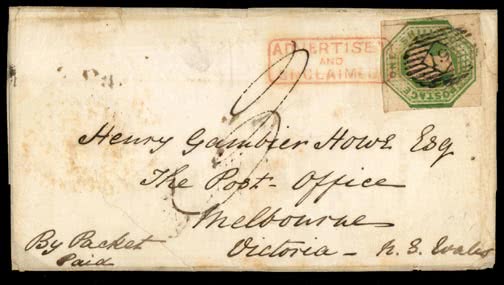 ADVERTISED
AND
UNCLAIMED
POSTAGE
Henry Gambier Howe Esq
The Post-Office
Melbourne
Victoria - N. S. Wales
By Packet
Paid